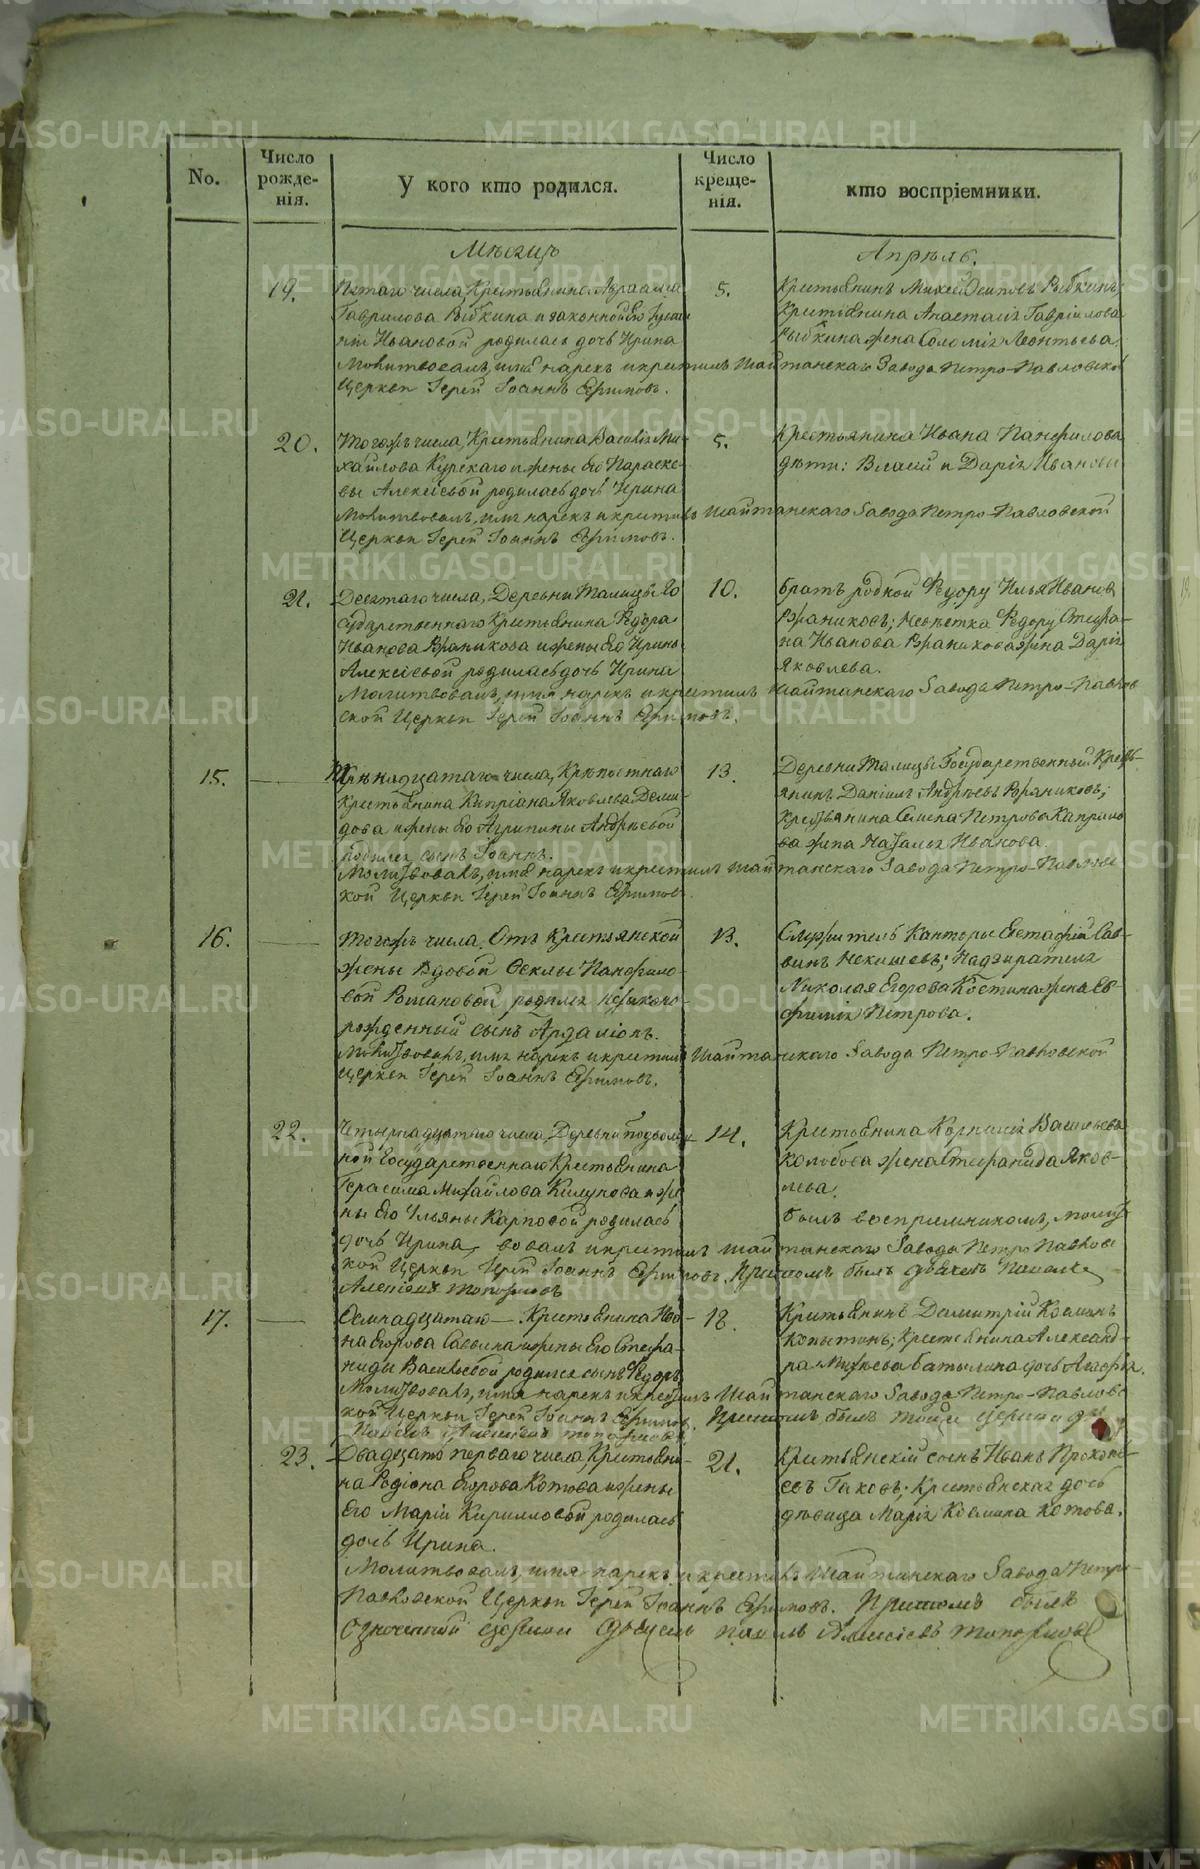 No.
Число рожденія.
У кого кто родился.
Число крещенія.
кто воспріемники.
Мѣсяцъ
Апрѣль.
19.
Пятаго числа, Крестьянина Авраама
Гаврилова Рыбкина и законной Его
Ивановой родилась дочь Ирина
Молитвовалъ, имя нарекъ и крестилъ Шайтанскаго Завода Петро-Павловской
Церкви Іерей Іоаннъ Ефимовъ.
5.
Крестьянинъ Михей Осиповъ Рыбкинъ;
Крестьянина Анастасія Гавріилова
Рыбкина жена Соломія Леонтьева.
20.
Тогожъ числа, Крестьянина Василія Ми-
хайлова Курскаго и жены Его Параске-
вы Алексіевой родилась дочь Ирина
Молитвовалъ, имя нарекъ и крестилъ Шайтанскаго Завода Петро-Павловской
Церкви Іерей Іоаннъ Ефимовъ.
5.
Крестьянина Ивана Панфилова
дѣти: Власій и Дарія Ивановы
21.
Десятаго числа, Деревни Талицы Го-
сударственнаго Крестьянина Ѳедора
Иванова Ряжникова и жены Его Ирины
Алексіевой родилась дочь Ирина
Молитвовалъ, имя нарекъ и крестилъ Шайтанскаго Завода Петро-Павлов
ской Церкви Іерей Іоаннъ Ефимовъ.
10.
братъ родной Ѳедору Илья Ивановъ
Ряжниковъ; невѣстка Ѳедору, Стефа-
на Иванова Ряжникова жена Дарія
Яковлева.
15.
Тринадцатаго числа, Крѣпостнаго
Крестьянина Кипріана Яковлева Деми-
дова и жены Его Агрипины Андрѣевой
родился сынъ Іоаннъ.
Молитвовалъ, имя нарекъ и крестилъ Шайтанскаго Завода Петро-Павловс
кой Церкви Іерей Іоаннъ Ефимовъ
13.
Деревни Талицы Государственный Кресть-
янинъ Даніилъ Андрѣевъ Ряжниковъ;
Крестьянина Семена Петрова
ва жена Наталья Иванова.
16.
Тогожъ числа. Отъ Крестьянской
жены вдовой Ѳеклы Панфило-
вой Романовой родился незаконно-
рожденный сынъ Ардаліонъ.
Молитвовалъ, имя нарекъ и крестилъ Шайтанскаго Завода Петро-Павловской
Церкви Іерей Іоаннъ Ефимовъ.
13.
Служитель Канторы Евстафій Сав-
винъ Некишевъ; Надзирателя
Николая Егорова Костина жена Ев-
фимія Петрова.
22.
Четырнадцатаго числа, Деревни
ной Государственнаго Крестьянина
Герасима Михайлова и же
ны Его Ульяны Карповой родилась
дочь Ирина, вовалъ и крестилъ Шайтанскаго Завода Петро Павловс
кой Церкви Іерей Іоаннъ Ефимовъ. Притомъ былъ
14.
Крестьянина Корнилія Васильева
Колобова жена Стефанида Яков-
лева.
былъ воспріемникомъ, молит
17.
Осмнадцатаго Крестьянина Ива-
на Егорова Саввина и жены Его Стефа-
ниды Васильевой родился сынъ Ѳедоръ
Молитвовалъ, имя нарекъ и крестилъ Шайтанскаго Завода Петро-Павловс
кой Церкви Іерей Іоаннъ Ефимовъ. Притомъ былъ
18.
Крестьянинъ Димитрій Козминъ
Копытинъ; Крестьянина Александ-
ра Батылина дочь Агафія.
23.
Двадцать перваго числа, Крестьяни-
на Родіона Егорова Котова и жены
Его Маріи Кирилловой родилась
дочь Ирина.
Молитвовалъ, имя нарекъ и крестилъ Шайтанскаго Завода Петро-
Павловской Церкви Іерей Іоаннъ Ефимовъ. Притомъ былъ
21.
Крестьянскій сынъ Иванъ Прокопь-
евъ Крестьянская дочь
дѣвица Марія Козмина Котова.
METRIKI.GASO-URAL.RU